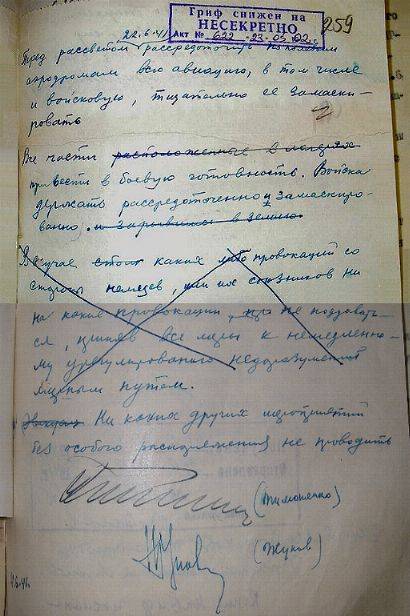 Гриф снижен на
НЕСЕКРЕТНО
Акт № 622 23.05.02.
259
22.6.41
Перед рассветом рассредоточить по полевым
аэродромам всю авиацию, в том числе
и войсковую, тщательно ее замаски-
ровать
2
Все части расположенные в лагерях
привести в боевую готовность. Войска
держать рассредоточенно и замаскиро-
ванно, и зарывшись в землю
В случае каких либо провокаций со
стороны немцев, или их союзников ни
на какие провокации не поддавать-
ся, приняв все меры к немедленно-
му урегулированию недоразумений
мирным путем.
Ни каких других мероприятий
без особого распоряжения не проводить
(Тимошенко)
(Жуков)